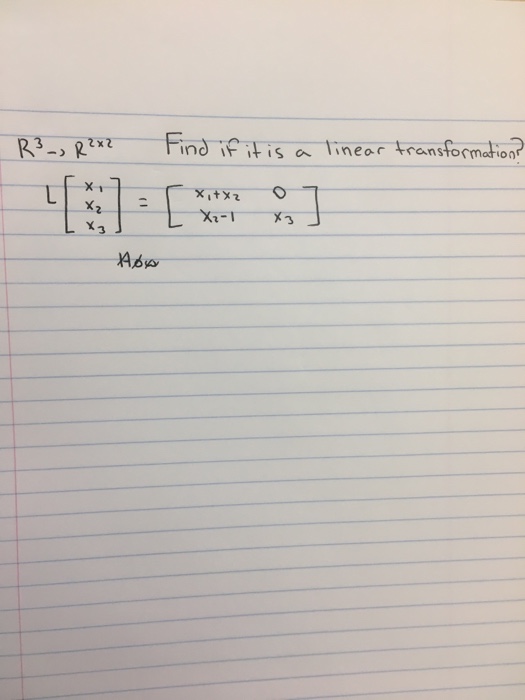 R³ → R²ˣ² Find if it is a linear transformation?
L [x₁ x₂ x₃] = [x₁+x₂ 0
x₂-1 x₃]